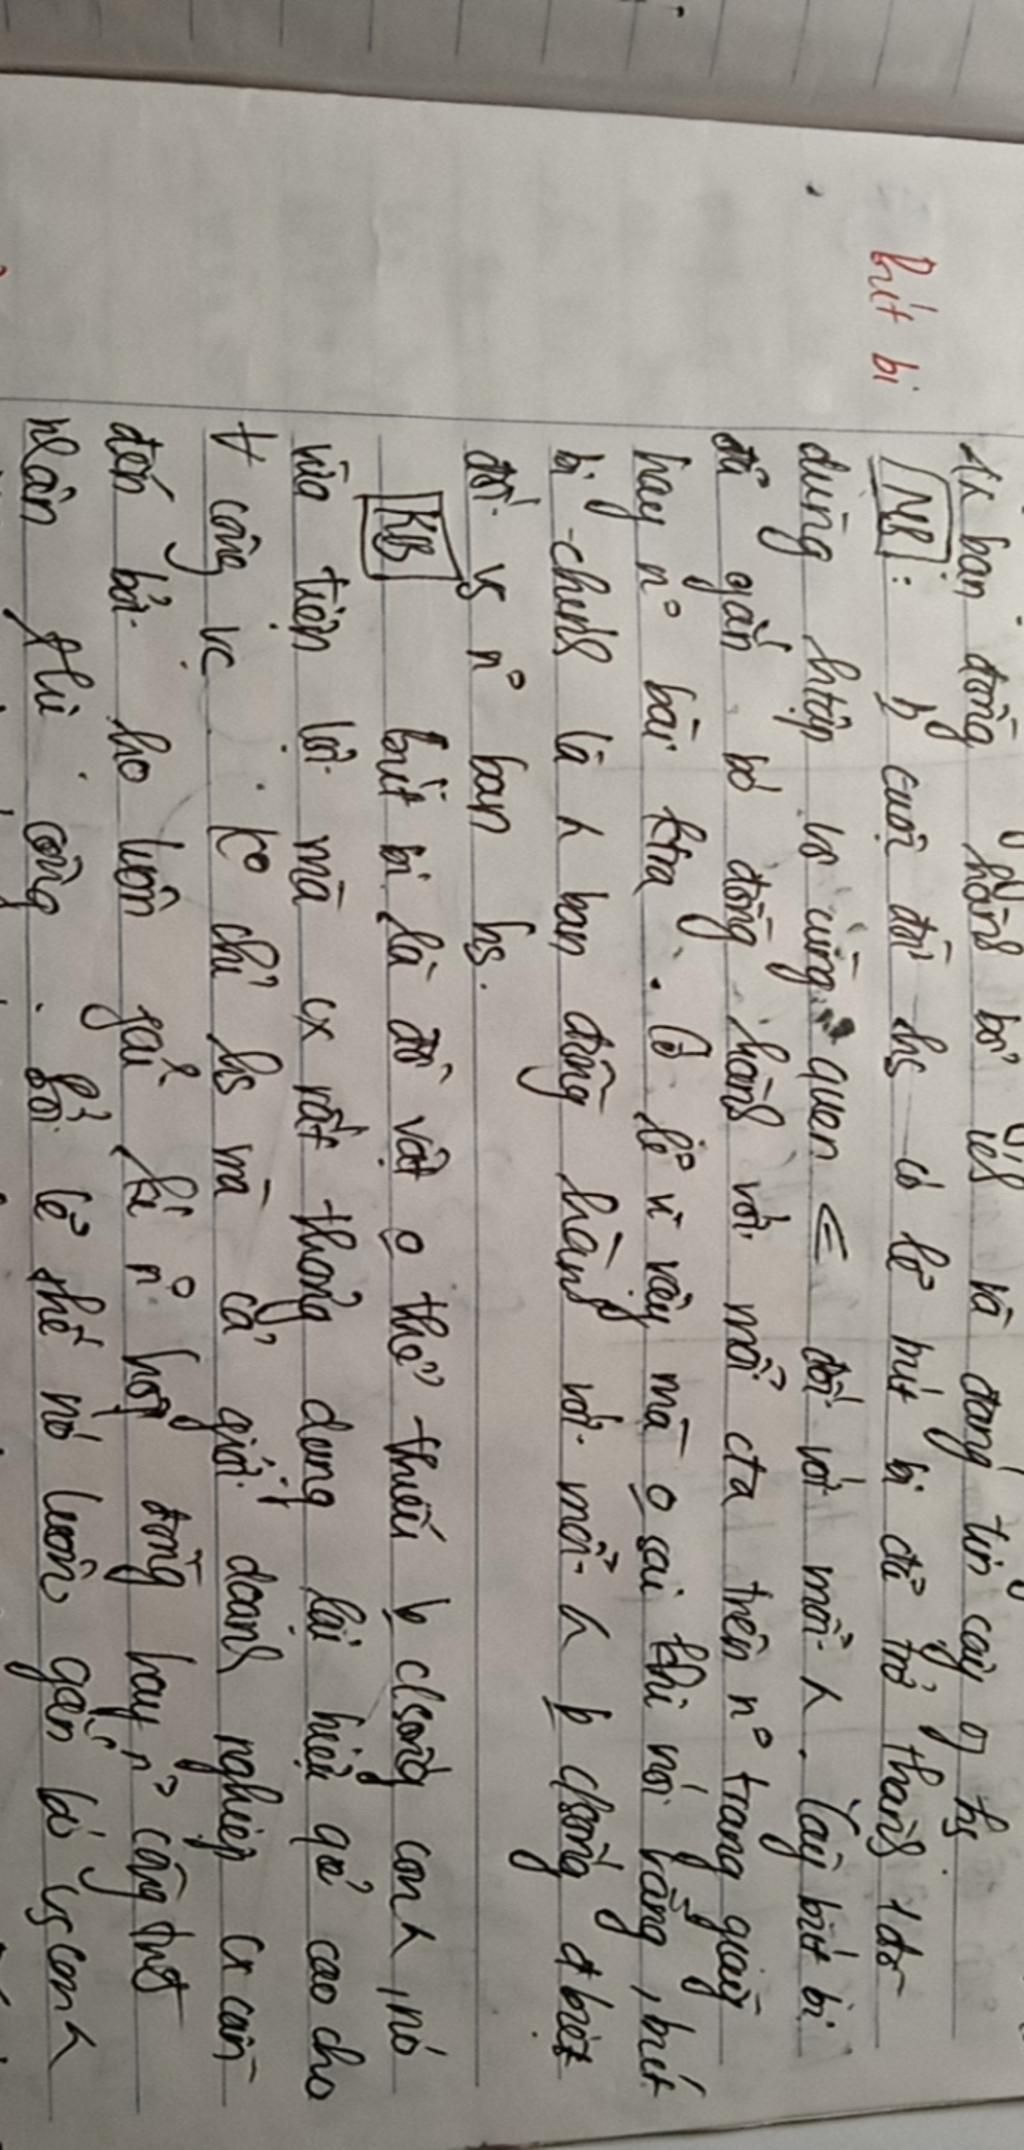 1 ng bạn đồng hành bổ ích và đáng tin cậy of hs.
bút bi
MB: cuộc đời hs có lẽ bút bi đã trở thành 1 đồ
dùng htập vô cùng quen đối với mỗi. Cây bút bi
đã gắn bó đồng hành với mỗi cta trên n° trang giấy
hay n° bài ktra. Có lẽ vì vậy mà o sai khi nói rằng, bút
bi chính là ban đồng hành với mỗi đbiệt
đối vs n° bạn hs.
KB bút bi là đồ vật o thể thiếu con, nó
vừa tiện lợi mà cx rất thông dụng lại hiệu quả cao cho
∀ công vc. k° chỉ hs mà cả giới doanh nghiệp cx cần
đến bởi họ luôn kí n° hợp đồng hay n° công
nhân thì cũng. bởi lẽ thế nó luôn gắn bó vs con